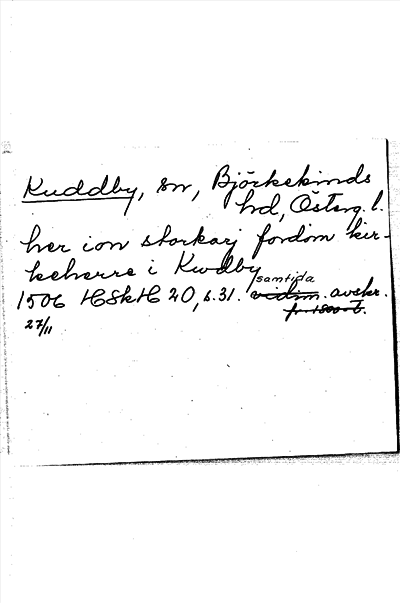 Kuddby, sn, Björkekinds
hd, Österg. l.
her ion starkarj fordom kir-
keherre i Kwdby
samtida
1506 HSkH 20, s. 31. vidim. avskr.
27/11 fr. 1800-t.